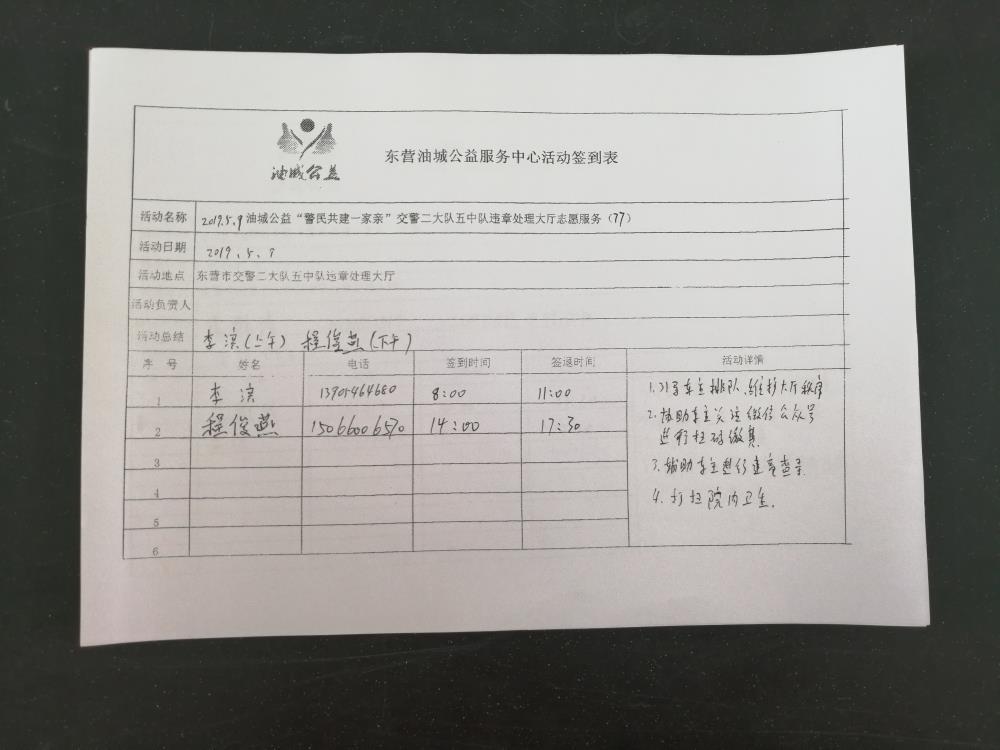 油城公益
东营油城公益服务中心活动签到表
活动名称 2019.5.9 油城公益“警民共建一家亲”交警二大队五中队违章处理大厅志愿服务(77)
活动日期 2019.5.9
活动地点 东营市交警二大队五中队违章处理大厅
活动负责人
活动总结 李滨(上午) 程俊燕(下午)
序号 姓名 电话 签到时间 签退时间 活动详情
1 李滨 13905464680 8:00 11:00
2 程俊燕 15066006570 14:00 17:30
3
4
5
6
1.引导车主排队、维护大厅秩序
2.协助车主关注微信公众号
进行扫码缴费
3.辅助车主进行违章查寻
4.打扫院内卫生.